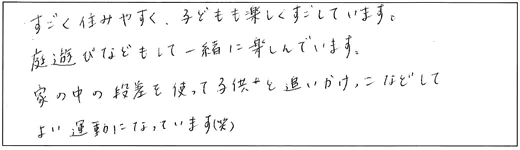 すごく住みやすく、子どもも楽しくすごしています。
庭遊びなどもして一緒に楽しんでいます。
家の中の段差を使って子供と追いかけっこなどして
よい運動になっています(笑)